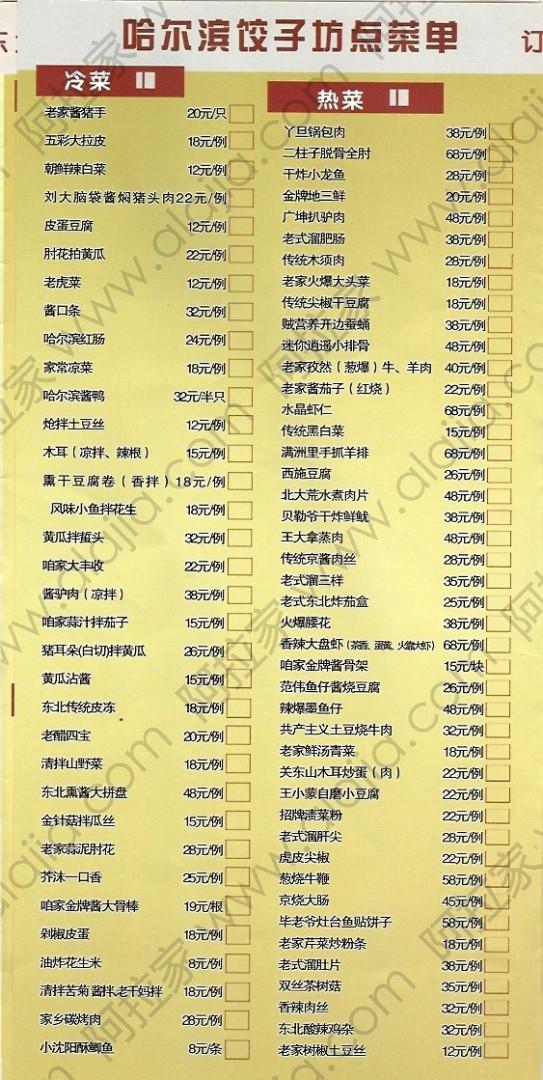 哈尔滨饺子坊点菜单
订
冷菜
老家酱猪手 20元/只
五彩大拉皮 18元/例
朝鲜辣白菜 12元/例
刘大脑袋酱焖猪头肉 22元/例
皮蛋豆腐 12元/例
肘花拍黄瓜 22元/例
老虎菜 12元/例
酱口条 32元/例
哈尔滨红肠 24元/例
家常凉菜 18元/例
哈尔滨酱鸭 32元/半只
炝拌土豆丝 12元/例
木耳（凉拌、辣根） 15元/例
熏干豆腐卷（香拌） 18元/例
风味小鱼拌花生 18元/例
黄瓜拌蜇头 32元/例
咱家大丰收 22元/例
酱驴肉（凉拌） 38元/例
咱家蒜汁拌茄子 15元/例
猪耳朵(白切)拌黄瓜 26元/例
黄瓜沾酱 15元/例
东北传统皮冻 18元/例
老醋四宝 20元/例
清拌山野菜 18元/例
东北熏酱大拼盘 48元/例
金针菇拌瓜丝 15元/例
老家蒜泥肘花 28元/例
芥沫一口香 25元/例
咱家金牌酱大骨棒 19元/根
剁椒皮蛋 18元/例
油炸花生米 8元/例
清拌苦菊 酱拌老干妈拌 18元/例
家乡碳烤肉 28元/例
小沈阳酥鲫鱼 8元/条
热菜
丫旦锅包肉 38元/例
二柱子脱骨全肘 68元/例
干炸小龙鱼 28元/例
金牌地三鲜 20元/例
广坤扒驴肉 48元/例
老式溜肥肠 38元/例
传统木须肉 28元/例
老家火爆大头菜 18元/例
传统尖椒干豆腐 18元/例
贼营养开边蚕蛹 38元/例
迷你逍遥小排骨 48元/例
老家孜然（葱爆）牛、羊肉 40元/例
老家酱茄子（红烧） 22元/例
水晶虾仁 68元/例
传统黑白菜 15元/例
满洲里手抓羊排 68元/例
西施豆腐 26元/例
北大荒水煮肉片 48元/例
贝勒爷干炸鲜鱿 38元/例
王大拿蒸肉 48元/例
传统京酱肉丝 28元/例
老式溜三样 35元/例
老式东北炸茄盒 25元/例
火爆腰花 38元/例
香辣大盘虾（茶香、蛋黄、火靠大虾） 68元/例
咱家金牌酱骨架 15元/块
范伟鱼仔酱烧豆腐 26元/例
辣爆墨鱼仔 48元/例
共产主义土豆烧牛肉 32元/例
老家鲜汤青菜 18元/例
关东山木耳炒蛋（肉） 22元/例
王小蒙自磨小豆腐 22元/例
招牌渍菜粉 22元/例
老式溜肝尖 28元/例
虎皮尖椒 22元/例
葱烧牛鞭 58元/例
京烧大肠 45元/例
毕老爷灶台鱼贴饼子 58元/例
老家芹菜炒粉条 18元/例
老式溜肚片 38元/例
双丝茶树菇 35元/例
香辣肉丝 32元/例
东北酸辣鸡杂 32元/例
老家树椒土豆丝 12元/例
阿拉家 www.alajia.com